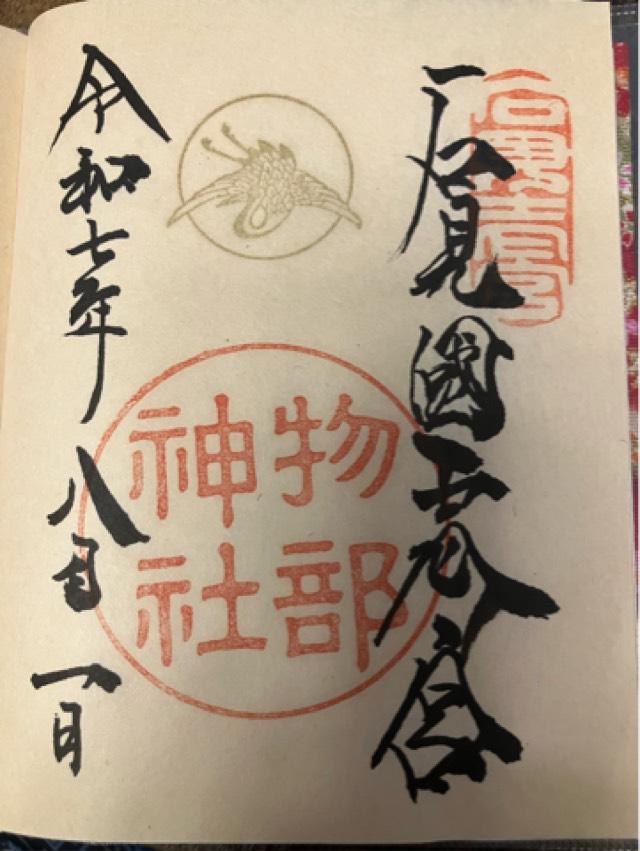 石見國
宮
物部
神社
令和七年八月一日